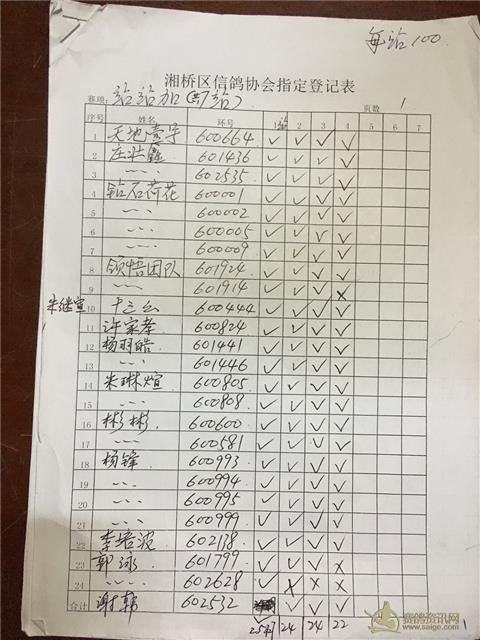 每站100
湘桥区信鸽协会指定登记表
赛项: 站站加(共7站) 页数 1
序号 姓名 环号 1站 2 3 4 5 6 7
1 天地豪宇 600664 ✓ ✓ ✓ ✓
2 庄壮鑫 601436 ✓ ✓ ✓ ✓
3 〃 602535 ✓ ✓ ✓ ✓
4 钻石荷花 600001 ✓ ✓ ✓ ✓
5 〃 600002 ✓ ✓ ✓ ✓
6 〃 600005 ✓ ✓ ✓ ✓
7 〃 600009 ✓ ✓ ✓ ✓
8 领悟团队 601924 ✓ ✓ ✓ ✓
9 〃 601914 ✓ ✓ ✓ ✗
朱继萱 10 十三公 600444 ✓ ✓ ✓ ✓
11 许家孝 600824 ✓ ✓ ✓ ✓
12 杨羽皓 601441 ✓ ✓ ✓ ✓
13 〃 601446 ✓ ✓ ✓ ✓
14 朱琳煊 600805 ✓ ✓ ✓ ✓
15 〃 600808 ✓ ✓ ✓ ✓
16 彬彬 600600 ✓ ✓ ✓ ✓
17 〃 600581 ✓ ✓ ✓ ✓
18 杨锋 600993 ✓ ✓ ✓ ✓
19 〃 600994 ✓ ✓ ✓ ✓
20 〃 600995 ✓ ✓ ✓ ✓
21 〃 600999 ✓ ✓ ✓ ✓
22 李培波 602138 ✓ ✓ ✓ ✓
23 郭泳 601799 ✓ ✓ ✓ ✗
24 〃 602628 ✓ ✗ ✗ ✗
合计 谢韩 602532 ✓ ✓ ✓
25羽 24 24 22
赛鸽资讯网
www.saige.com